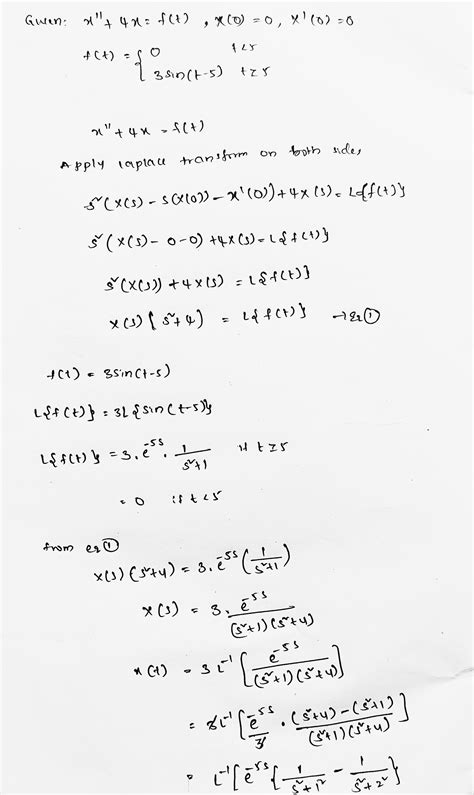 Given: x'' + 4x = f(t) , x(0) = 0, x'(0) = 0
f(t) = { 0 t<5
3sin(t-5) t≥5
x'' + 4x = f(t)
Apply laplace transform on both sides,
s²(X(s) - s(x(0)) - x'(0)) + 4X(s) = L{f(t)}
s²(X(s) - 0-0) + 4X(s) = L{f(t)}
s²(X(s)) + 4X(s) = L{f(t)}
X(s) [s²+4] = L{f(t)} → eq ①
f(t) = 3sin(t-5)
L{f(t)} = 3L{sin(t-5)}
L{f(t)} = 3.e^-5s . 1/(s²+1) if t≥5
= 0 if t<5
from eq ①
X(s) (s²+4) = 3.e^-5s (1/(s²+1))
X(s) = 3. e^-5s/((s²+1)(s²+4))
x(t) = 3L^-1 [e^-5s/((s²+1)(s²+4))]
= 3L^-1 [e^-5s/3 . ((s²+4)-(s²+1))/((s²+1)(s²+4))]
= L^-1 [e^-5s { 1/(s²+1²) - 1/(s²+2²) }